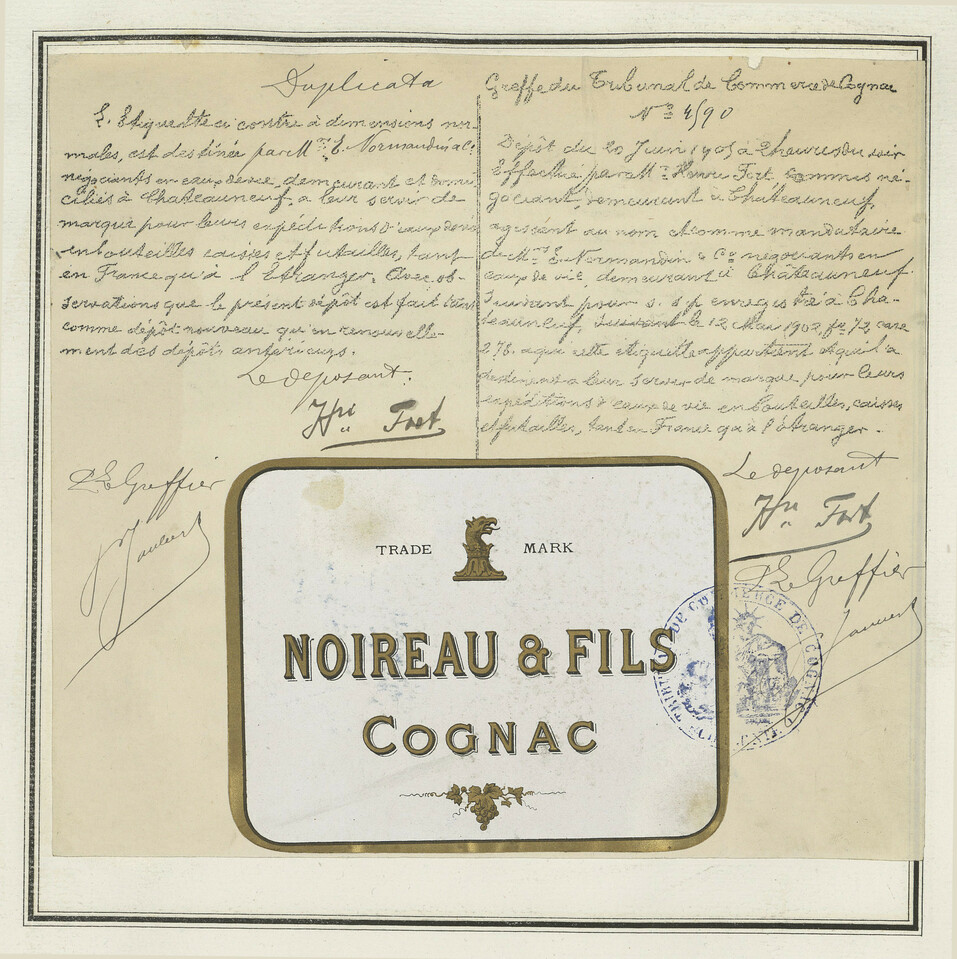 Duplicata
L'Etiquette ci contre à dimensions nor-
males, est destinée par MM. E. Normandin & Cie
négociants en eaux de vie, demeurant et domi-
ciliés à Chateauneuf, a leur servir de
marque pour leurs expéditions d'eaux de vie
en bouteilles caisses et futailles, tant
en France qu'à l'Etranger. Avec ob-
servations que le présent dépôt est fait tant
comme dépôt nouveau qu'en renouvelle-
ment des dépôts antérieurs.
Le déposant.
Hri Fort
Le Greffier
Greffe du Tribunal de Commerce de Cognac
No 4590
Dépôt du 20 Juin 1905 à 2 heures du soir
Effectué par M. Henri Fort commis né-
gociant, demeurant à Châteauneuf,
agissant au nom et comme mandataire
de MM. E. Normandin & Co négociants en
eaux de vie, demeurant à Châteauneuf.
Suivant pouvoir s. s. p. enregistré à Cha-
teauneuf, le 12 Mai 1902, fo 73, case
278. a que cette étiquette appartient & qu'il a
destinent a leur servir de marque pour leurs
expéditions d'eaux de vie en bouteilles, caisses
et futailles, tant en France qu'à l'étranger.
Le déposant
Hri Fort
Le Greffier
TRADE MARK
NOIREAU & FILS
COGNAC
DE COMMERCE DE COGNAC